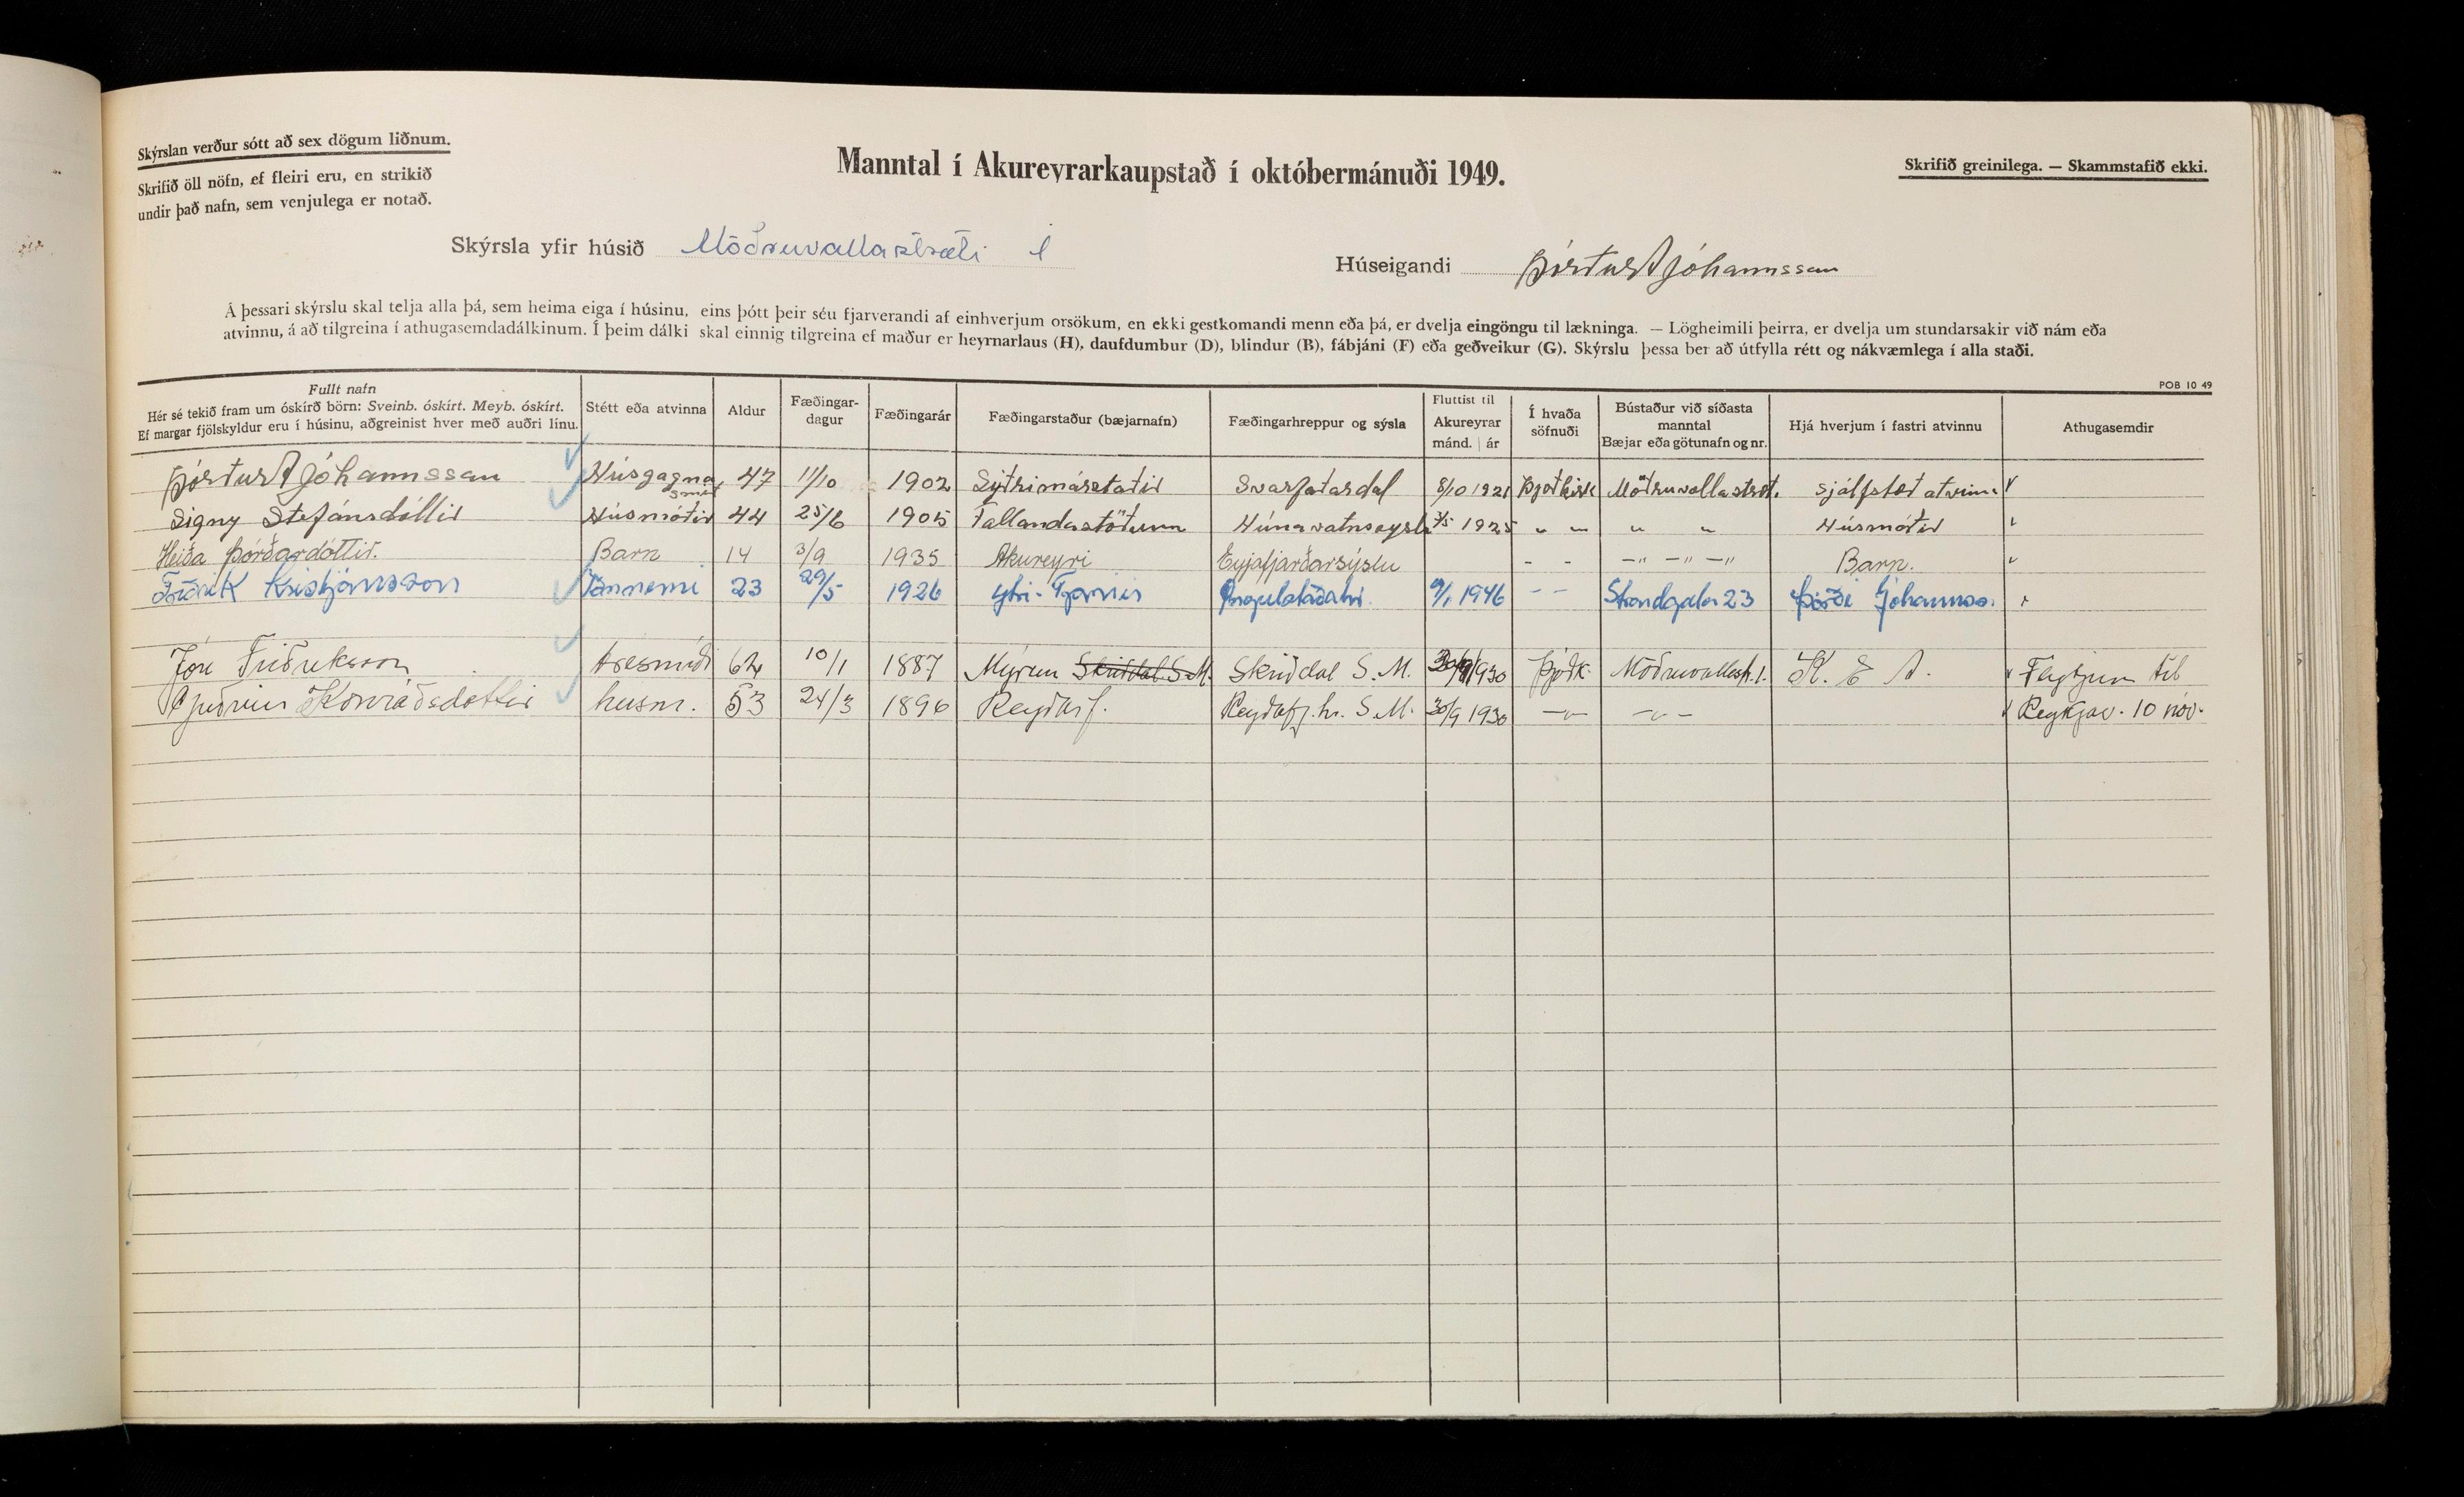 Skýrslan verður sótt að sex dögum liðnum.
Skrifið öll nöfn, ef fleiri eru, en strikið
undir það nafn, sem venjulega er notað.
Manntal í Akureyrarkaupstað í októbermánuði 1949.
Skrifið greinilega. — Skammstafið ekki.
Skýrsla yfir húsið Möðruvallastræti 1
Húseigandi Þórður A Jóhannsson
Á þessari skýrslu skal telja alla þá, sem heima eiga í húsinu, eins þótt þeir séu fjarverandi af einhverjum orsökum, en ekki gestkomandi menn eða þá, er dvelja eingöngu til lækninga. — Lögheimili þeirra, er dvelja um stundarsakir við nám eða
atvinnu, á að tilgreina í athugasemdadálkinum. Í þeim dálki skal einnig tilgreina ef maður er heyrnarlaus (H), daufdumbur (D), blindur (B), fábjáni (F) eða geðveikur (G). Skýrslu þessa ber að útfylla rétt og nákvæmlega í alla staði.
POB 10 49
Fullt nafn
Hér sé tekið fram um óskírð börn: Sveinb. óskírt. Meyb. óskírt.
Ef margar fjölskyldur eru í húsinu, aðgreinist hver með auðri línu.
Stétt eða atvinna
Aldur
Fæðingar-
dagur
Fæðingarár
Fæðingarstaður (bæjarnafn)
Fæðingarhreppur og sýsla
Fluttist til
Akureyrar
mánd. | ár
Í hvaða
söfnuði
Bústaður við síðasta
manntal
Bæjar eða götunafn og nr.
Hjá hverjum í fastri atvinnu
Athugasemdir
Þórður A Jóhannsson Húsgagnasmið 47 11/10 1902 Sýðrimárstaðir Svarfaðardal 8/10 1921 Þjóðkirk Möðruvallastræt. sjálfstæð atvinn √
Signy Stefánsdóttir Húsmóðir 44 25/6 1905 Fallandastöðum Húnavatnssysl 1925 " " " " Húsmóðir
Heiða Þórðardóttir. Barn 14 3/9 1935 Akureyri Eyjafjarðarsýslu - - -"- -"- -" Barn.
Friðrik Kristjánsson Iðnnemi 23 29/5 1926 Ytri-Tjarnir Öngulstaðahr. 9/1 1946 - - Strandgata 23 Þórði Jóhannss.
Jón Friðriksson trésmiði 62 10/1 1887 Mýrum Skriðdal S.M. Skriðdal S. M. 30/9 1930 Þjóðk. Möðruvallastr. 1. K. E A. Flytjum til
Guðrún Konráðsdóttir húsm. 53 24/3 1896 Reyðarf. Reyðafj.hr. S.M. 30/9 1930 —"— —"— Reykjav. 10 nóv.